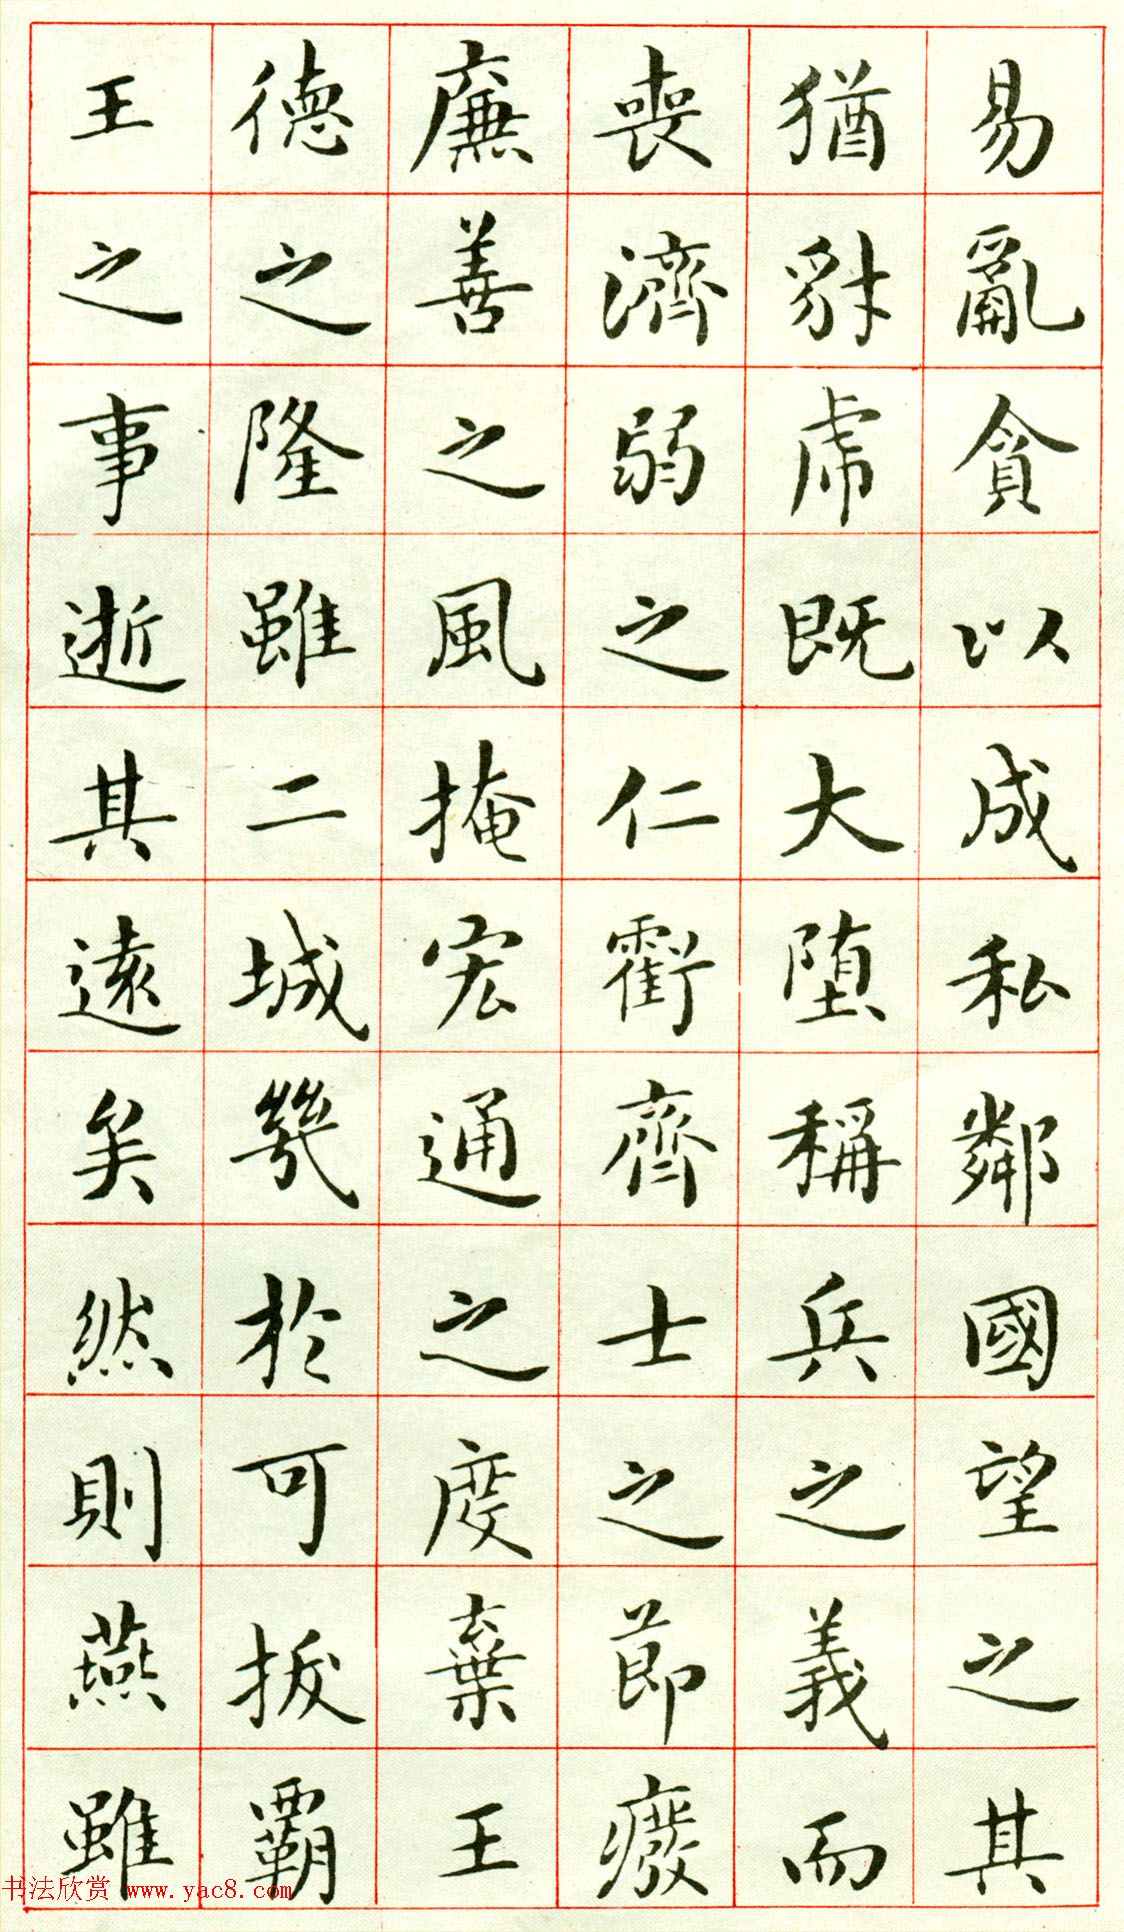 易亂貪以成私鄰國望之其
猶豺虎既大堕稱兵之義而
喪濟弱之仁虧齊士之節廢
廉善之風掩宏通之度棄王
德之隆雖二城幾於可拔霸
王之事逝其遠矣然則燕雖
书法欣赏 www.yac8.com